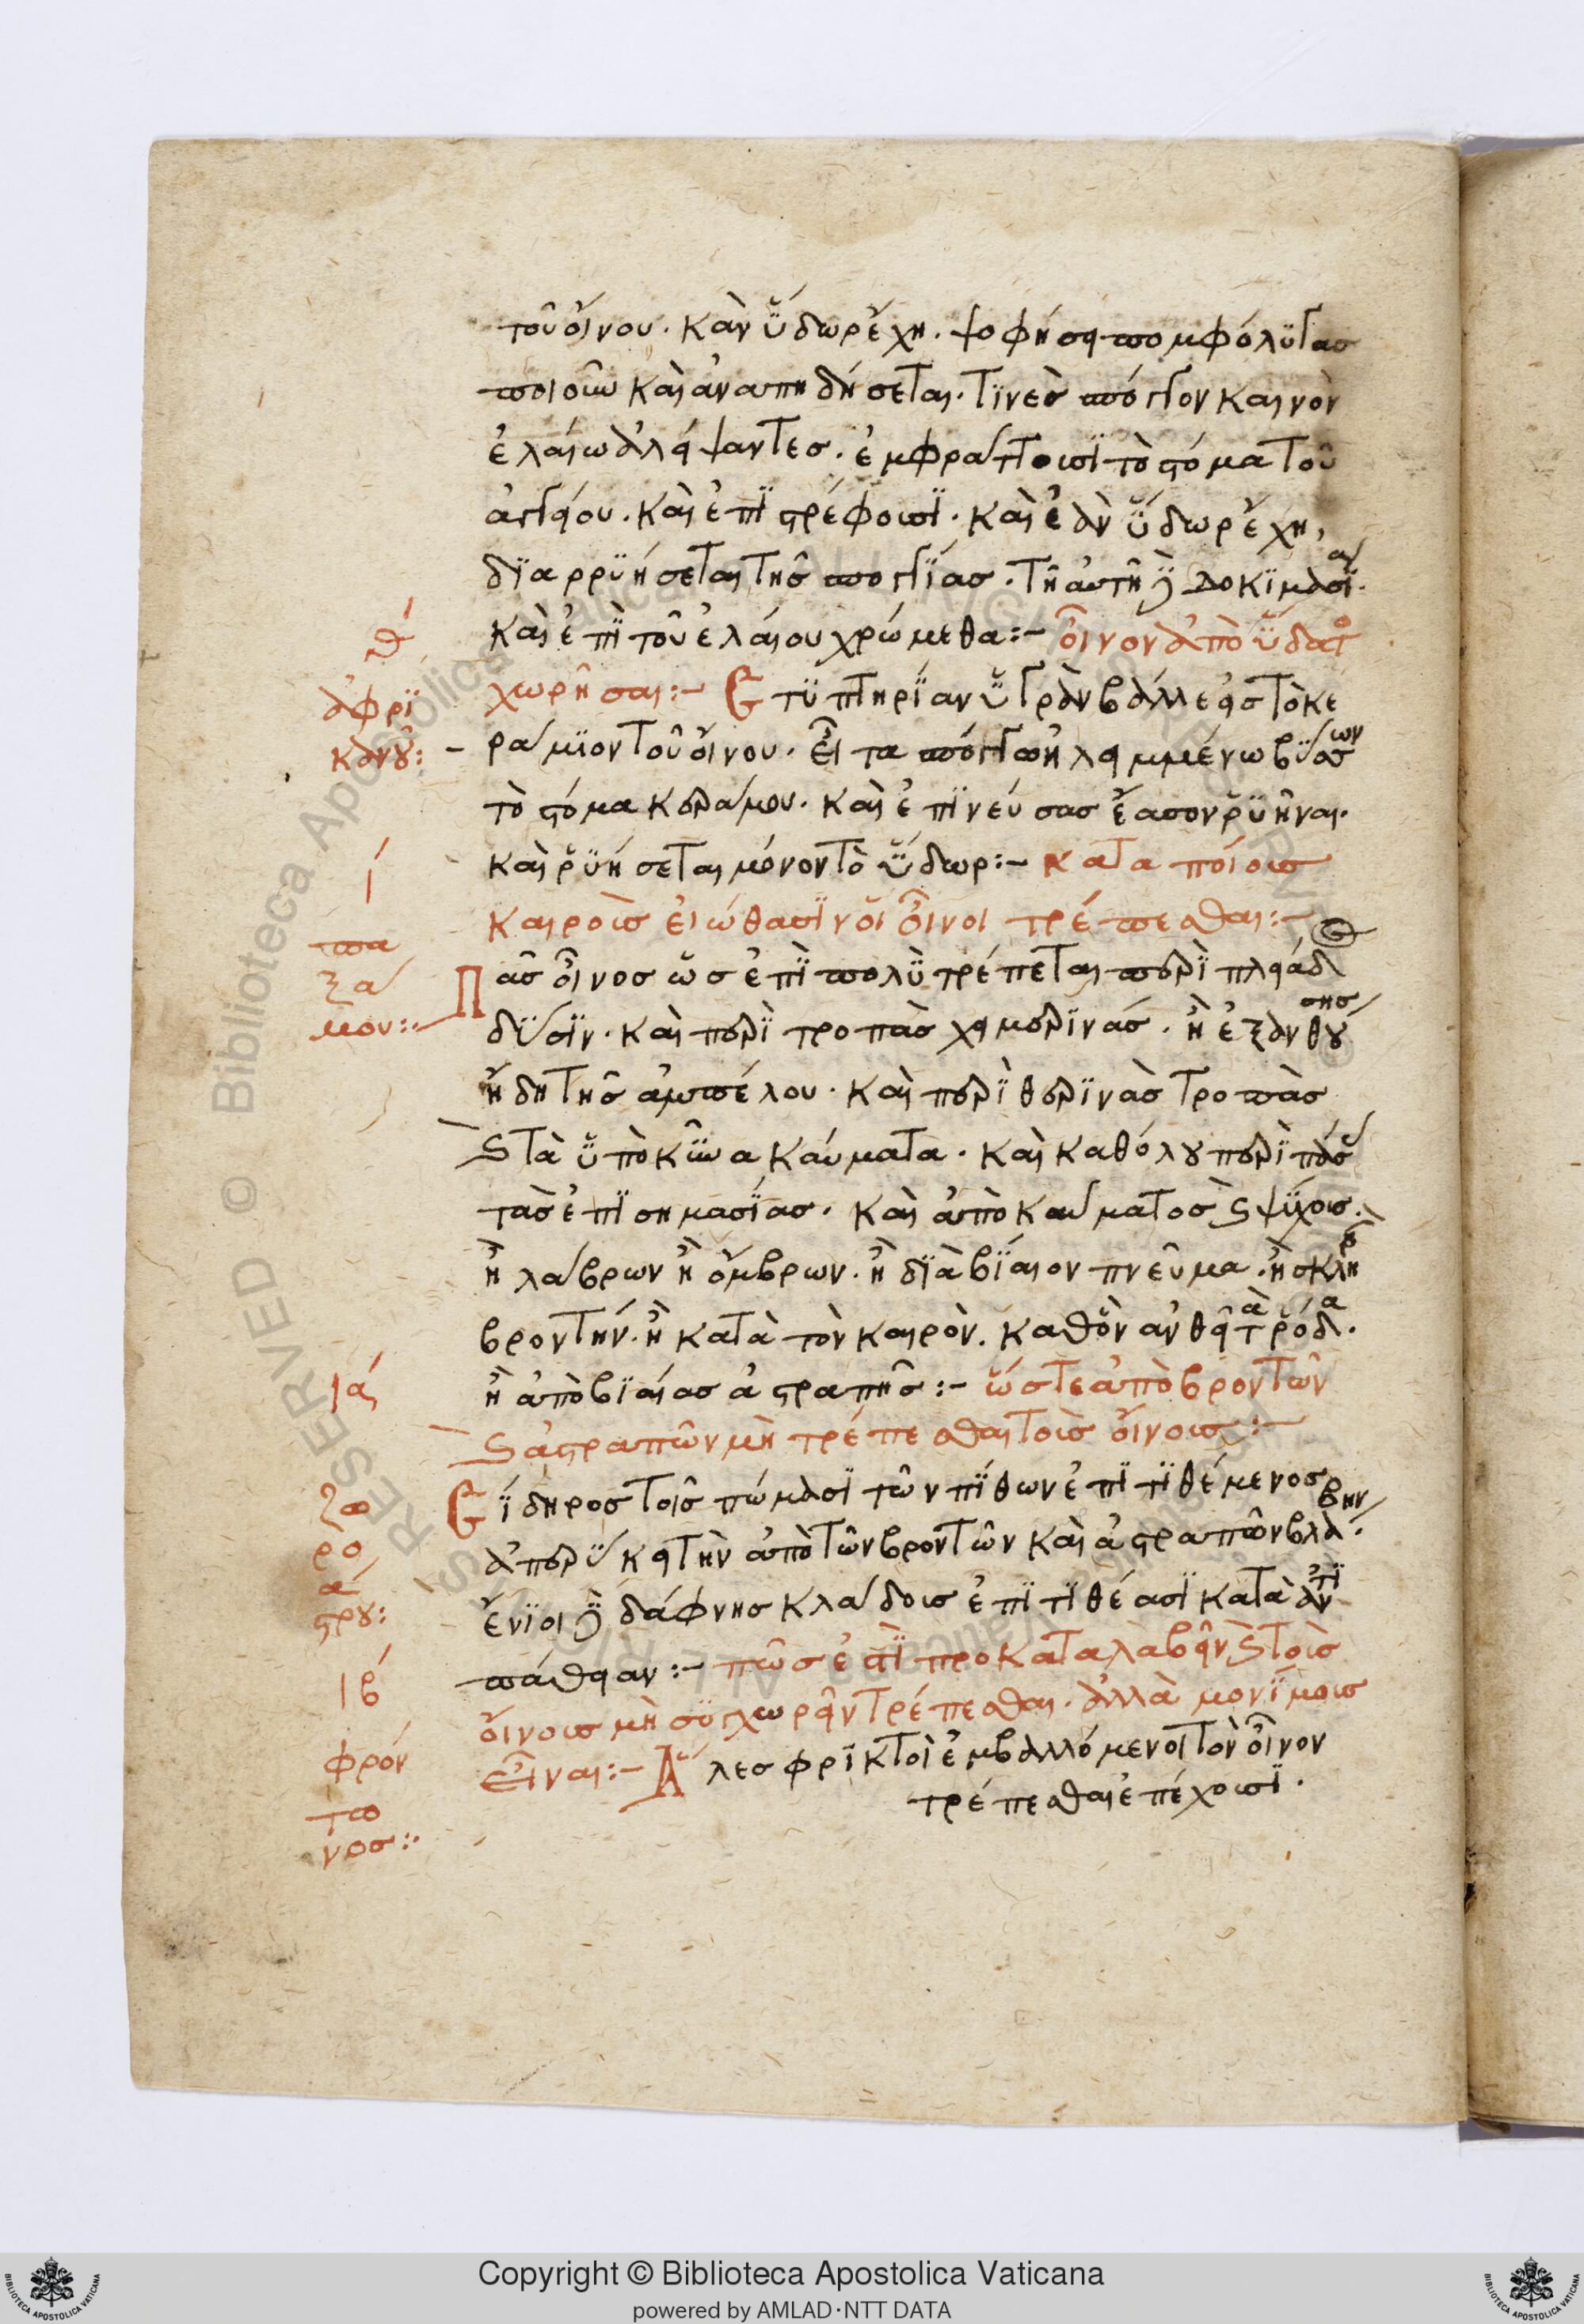 τοῦ οἴνου. κἂν ὕδωρ ἔχη. ψοφήσει πομφόλυγας
ποιοῦν καὶ ἀναπηδήσεται. τινὲς σπόγγον καινὸν
ἐλαίω ἀλείψαντες. ἐμφράττουσι τὸ στόμα τοῦ
ἀγγείου. καὶ ἐπιστρέφουσι. καὶ ἐὰν ὕδωρ ἔχη,
διαρρυήσεται τῆς σπογγιᾶς. τῆ αὐτῆ δὲ δοκιμασί(α).
καὶ ἐπὶ τοῦ ἐλαίου χρώμεθα:- οἶνον ἀπὸ ὕδατος
χωρῆσαι:- Στυπτηρίαν ὑγρὰν βάλλε εἰς τὸ κε
ράμιον τοῦ οἴνου. εἶτα σπόγγω ἠλειμμένω βύσων
τὸ στόμα κεράμου. καὶ ἐπινεύσας ἔασον ῥυῆναι.
καὶ ῥυήσεται μόνον τὸ ὕδωρ:- κατὰ ποίους
καιροὺς εἰώθασιν οἱ οἶνοι τρέπεσθαι:-
Πᾶς οἶνος ὡς ἐπὶ πολὺ τρέπεται περὶ πλειάδ
δύσιν. καὶ περὶ τροπὰς χειμερινάς. ἢ ἐξανθούσης
ἤδη τῆς ἀμπέλου. καὶ περὶ θερινὰς τροπὰς
καὶ τὰ ὑπὸ κύνα καύματα. καὶ καθόλου περὶ πάσ
τὰς ἐπισημασίας. καὶ ἀπὸ καύματος καὶ ψύχους.
ἢ λάβρων ἢ ὄμβρων. ἢ διὰ βίαιον πνεῦμα. ἢ σκληρ
βροντήν. ἢ κατὰ τὸν καιρὸν. καθ' ὃν ἀνθεῖ τὰ ῥόδα.
ἢ ἀπὸ βιαίας ἀστραπῆς:- ὥστε ἀπὸ βροντῶν
καὶ ἀστραπῶν μὴ τρέπεσθαι τοὺς οἴνους:-
Σίδηρος τοῖς πώμασι τῶν πίθων ἐπιτιθέμενος
ἀπερύκει τὴν ἀπὸ τῶν βροντῶν καὶ ἀστραπῶν βλάβην.
ἔνιοι δὲ δάφνης κλάδους ἐπιτιθέασι κατὰ ἀντι
πάθειαν:- πῶς ἐπὶ προκαταλαβεῖν καὶ τοὺς
οἴνους μὴ συγχωρεῖν τρέπεσθαι. ἀλλὰ μονίμους
εἶναι:- Ἅλες φρικτοὶ ἐμβαλλόμενοι τὸν οἶνον
τρέπεσθαι ἐπέχουσι.
θ
ἀφρι
κανοῦ:
ι
πα
ξά
μου:
ια
ζω
ρο
ά
στρου:
ιβ
φρόν
τω
νος:
Copyright © Biblioteca Apostolica Vaticana
powered by AMLAD·NTT DATA